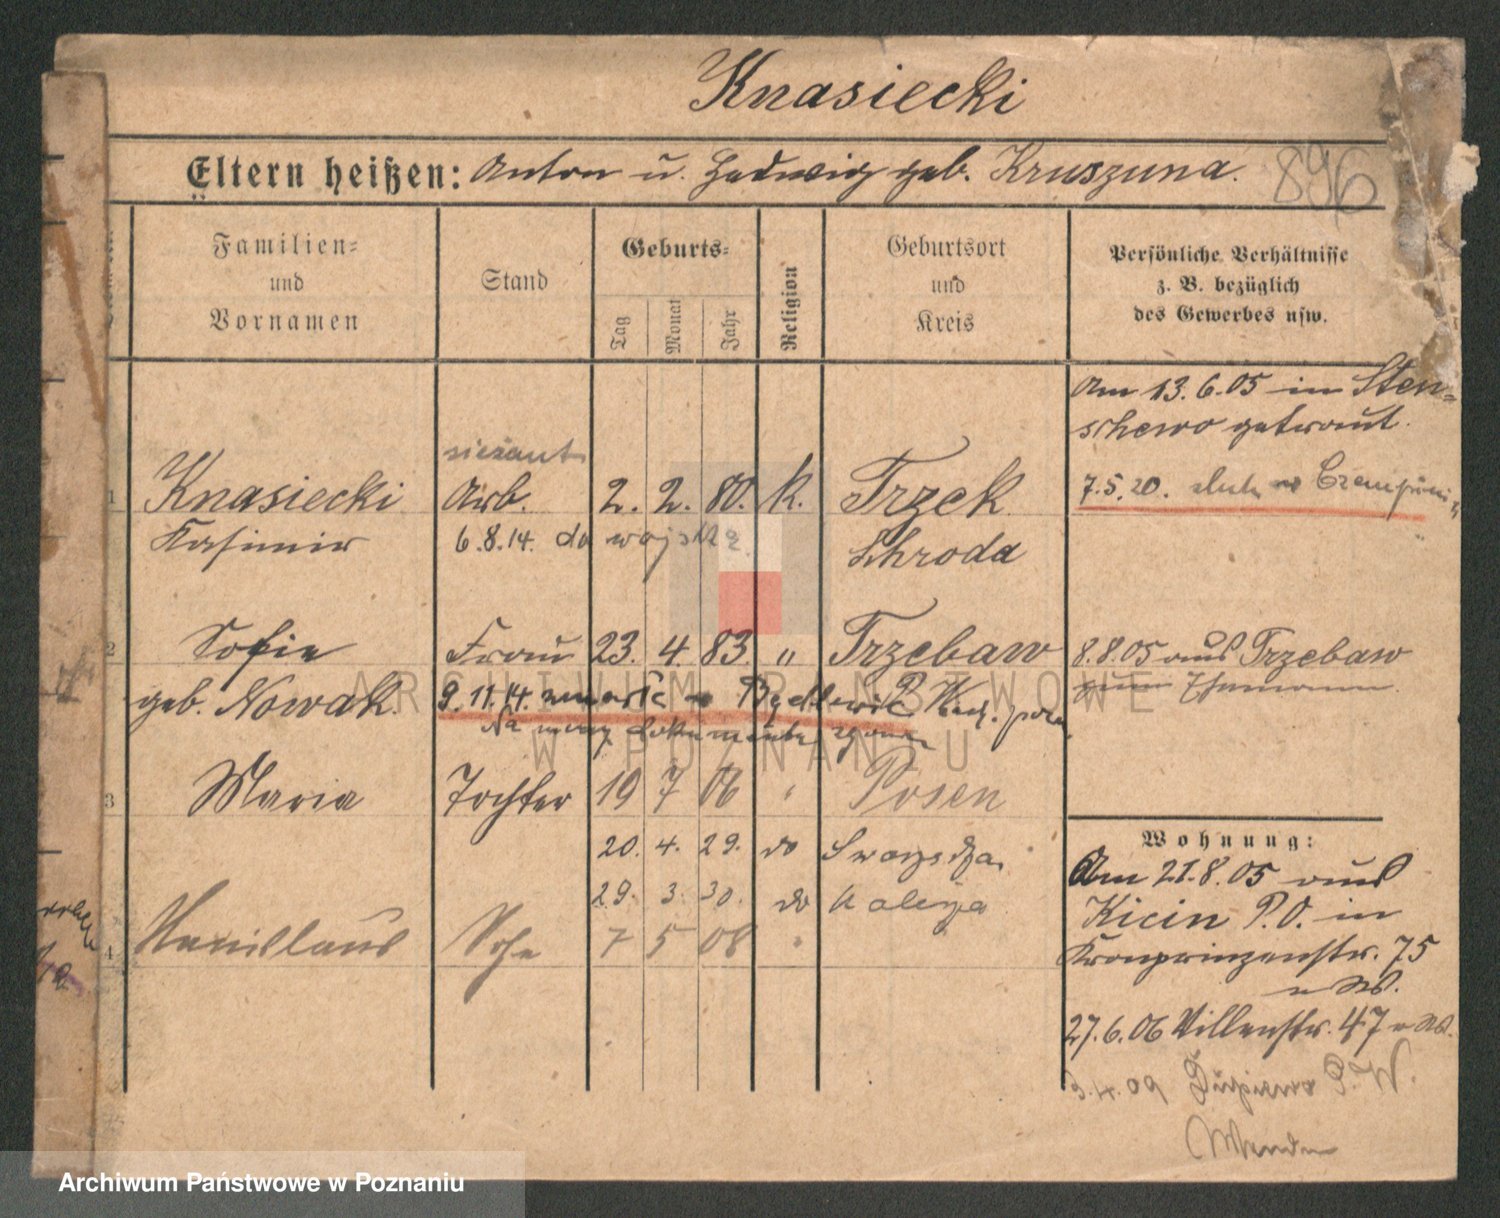 Knasiecki
Eltern heißen: Anton u. Hedwig geb. Kruszuna.
896
Familien= und Vornamen
Stand
Geburts=
Tag
Monat
Jahr
Religion
Geburtsort und Kreis
Persönliche Verhältnisse
z. B. bezüglich
des Gewerbes usw.
Am 13.6.05 in Sten=
schewo getraut.
1 Knasiecki Arb. 2. 2. 80. k. Trzek
7.5.20.
Kasimir 6.8.14. do wojska Schroda
2 Sofie Frau 23. 4. 83. " Trzebaw
8.8.05 aus Trzebaw
zum Ehemann.
geb. Nowak. 9.11.14. zmarła
Na mocy dokumentu
3 Maria Tochter 19 7 06 " Posen
20. 4. 29. do Swarzędza
29. 3. 30. do
4 Stanislaus Sohn 7 5 08 "
Wohnung:
Am 21.8.05 aus
Kicin P.O. in
Kronprinzenstr. 75
27.6.06 Villenstr. 47
3.4.09 P.W.
ARCHIWUM PAŃSTWOWE
W POZNANIU
Archiwum Państwowe w Poznaniu